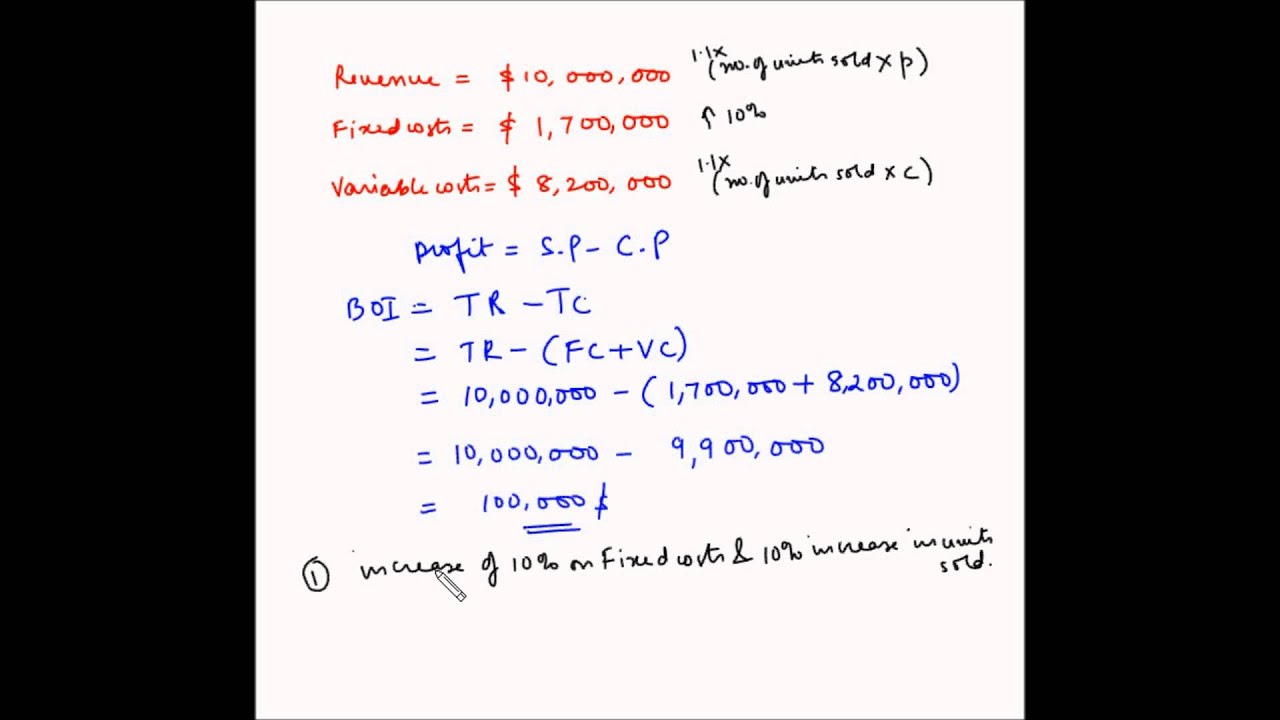 Revenue = $ 10,000,000 1.1x (no. of units sold x p)
Fixed costs = $ 1,700,000 ↑ 10%
Variable costs = $ 8,200,000 1.1x (no. of units sold x c)
profit = S.P - C.P
BOI = TR - TC
= TR - (FC+VC)
= 10,000,000 - (1,700,000 + 8,200,000)
= 10,000,000 - 9,900,000
= 100,000 $
① increase of 10% on Fixed costs & 10% increase in units
sold.